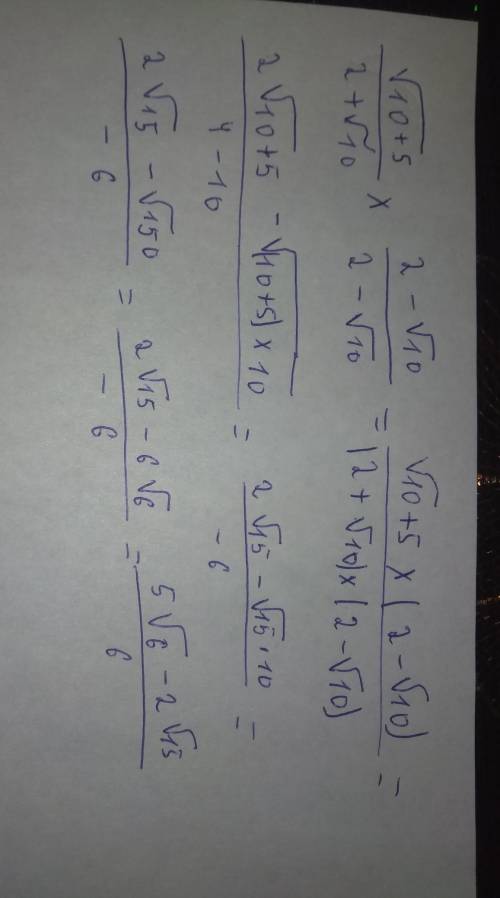 √(10+5)/(2+√10) × (2-√10)/(2-√10) = (√(10+5) × (2-√10))/((2+√10)×(2-√10)) =
(2√(10+5) - √((10+5)×10))/(4-10) = (2√15 - √(15·10))/(-6) =
(2√15 - √150)/(-6) = (2√15 - 6√6)/(-6) = (5√6 - 2√15)/6